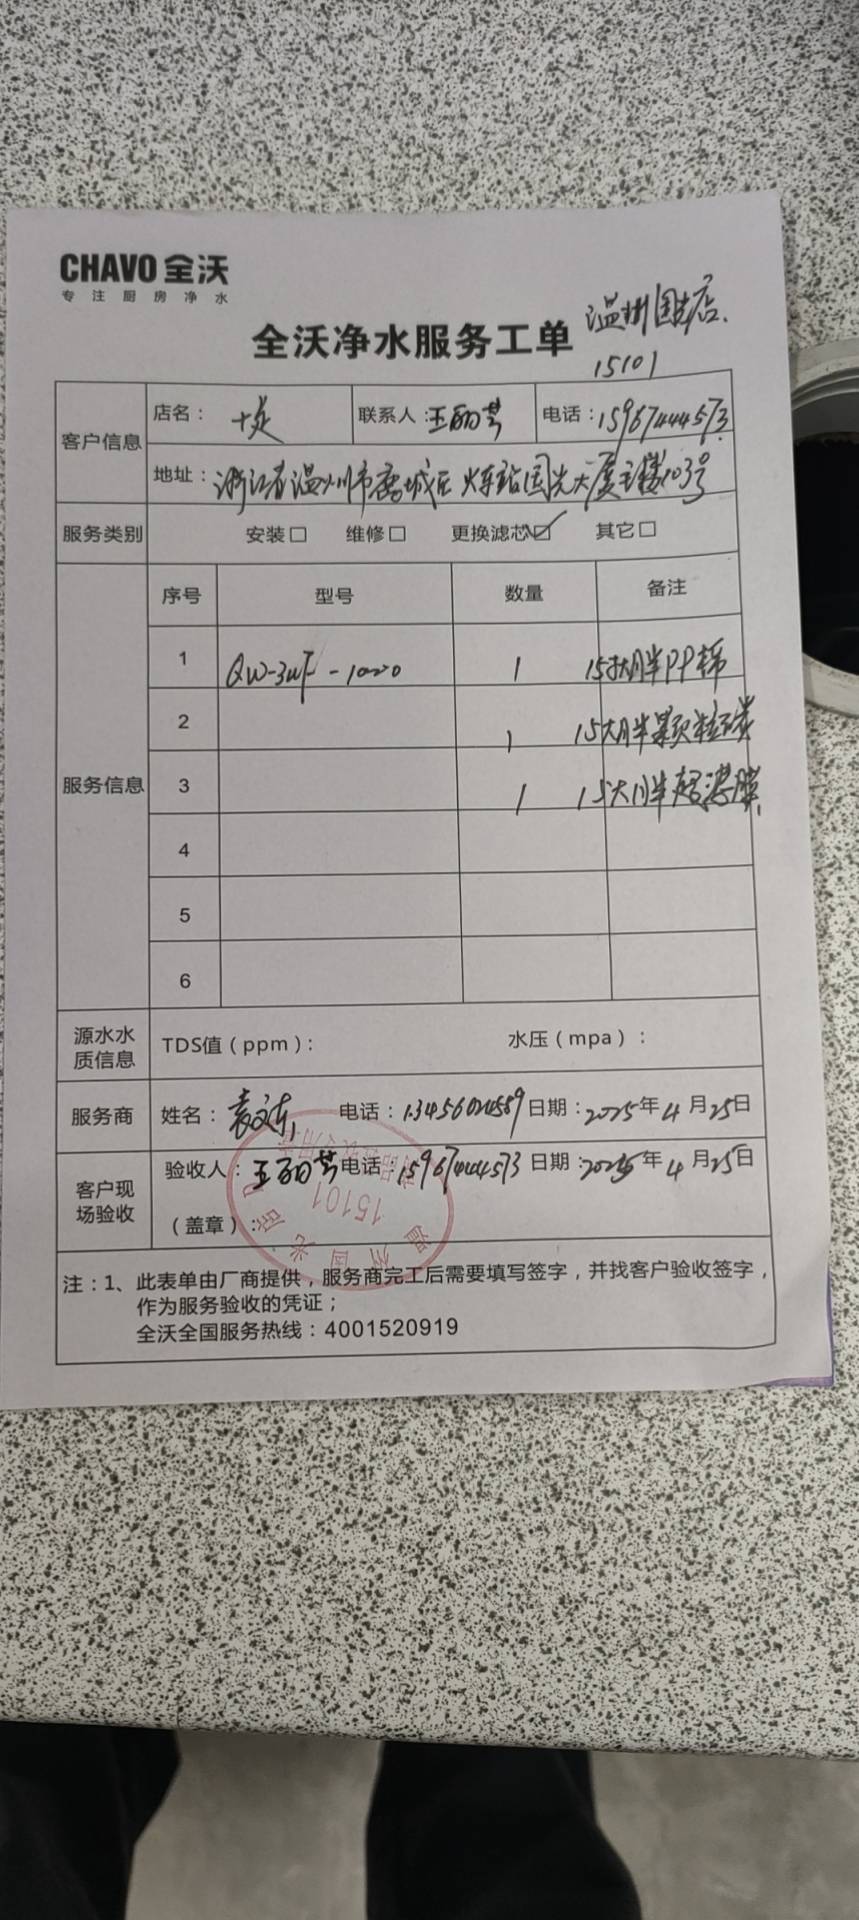 CHAVO 全沃
专注厨房净水
温州国光店
15101
全沃净水服务工单
客户信息 店名： 联系人：王丽芬 电话：15967444573
地址：浙江省温州市鹿城区火车站国光大厦主楼103号
服务类别 安装□ 维修□ 更换滤芯☑ 其它□
服务信息 序号 型号 数量 备注
1 QW-3UF-1000 1 15寸大胖PP棉
2 1 15大胖颗粒碳
3 1 15大胖超滤膜
4
5
6
源水水质信息 TDS值（ppm）： 水压（mpa）：
服务商 姓名： 电话： 日期：2025年4月25日
客户现场验收 验收人：王丽芬 电话：15967444573 日期：2025年4月25日
（盖章）：
温州国光店
15101
注：1、此表单由厂商提供，服务商完工后需要填写签字，并找客户验收签字，
作为服务验收的凭证；
全沃全国服务热线：4001520919